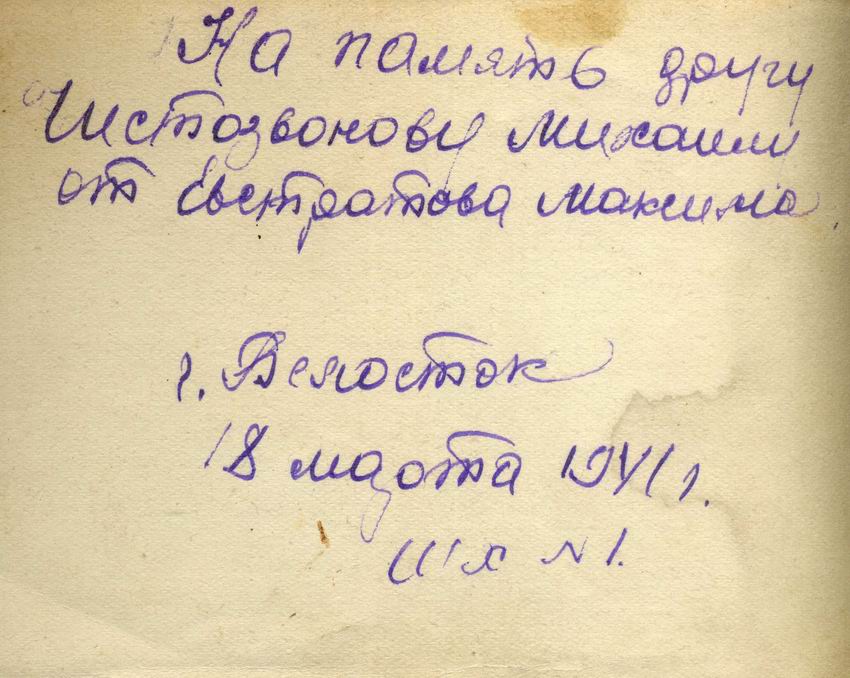 На память другу
Чистозвонову Михаилу
от Евстратова Максима
г. Белосток
18 марта 1941 г.
№ 1.